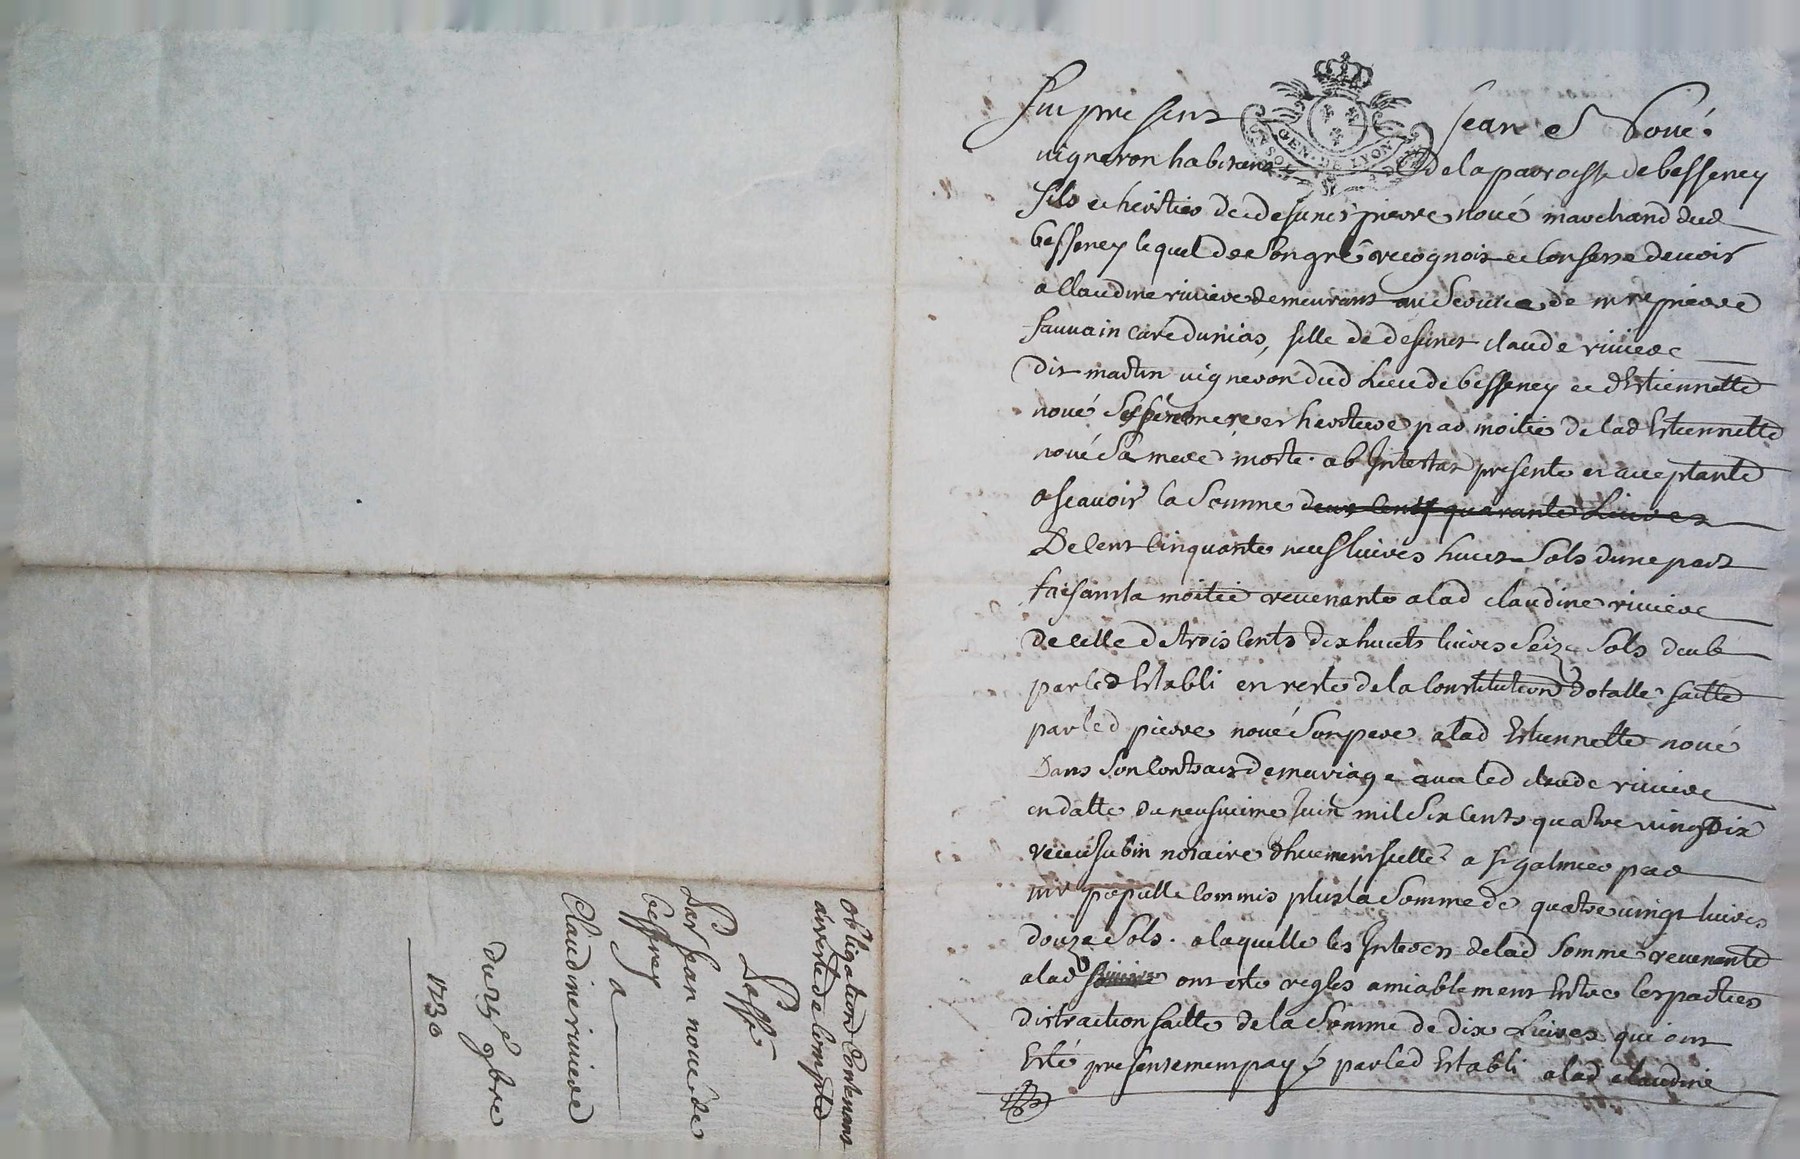 obligation Contenant
arreste de Compte
Passé
Par Jean noué de
besseney
a
Claudine riviere
du 25e 9bre
1730
Fut present Jean Noué
GEN. DE LYON
vigneron habitant de la parroisse de besseney
fils et heritier de defunct pierre noué marchand dud
besseney lequel de son gré recognoit et Confesse devoir
a Claudine riviere demeurant au service de mre pierre
fauvain curé dunias, fille de defunct claude riviere
dit martin vigneron dud Lieu de besseney et d'Estiennette
noué ses pere mere et heritiere par moitié de lad Estiennette
noué sa mere morte ab Intestat presente et acceptante
a scavoir la somme deux Cents quarante Livres
De Cent Cinquante neuf livres huict sols dune part
faisant la moitié revenante a lad claudine riviere
de celle de trois Cents dix huicts livres seize sols deube
par led Establi en reste de la Constitution dotalle faitte
par led pierre noué son pere a lad Estiennette noué
Dans son Contract de mariage avec led claude riviere
en datte du neufvieme Juin mil six Cents quatre vingt dix
receu subin notaire a st galmier par
mr Commis plus la somme de quatre vingt livres
douze sols a laquelle les Interets de lad somme revenante
a lad riviere ont esté regles amiablement Entre les parties
distraction faitte de la somme de dix Livres qui ont
Esté presentement payé par led Establi a lad claudine